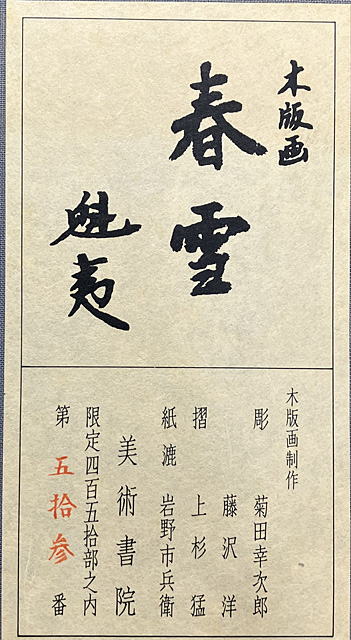 木版画
春雪
魁夷
木版画制作
彫 菊田幸次郎
藤沢洋
摺 上杉猛
紙漉 岩野市兵衛
美術書院
限定四百五拾部之内
第五拾参番